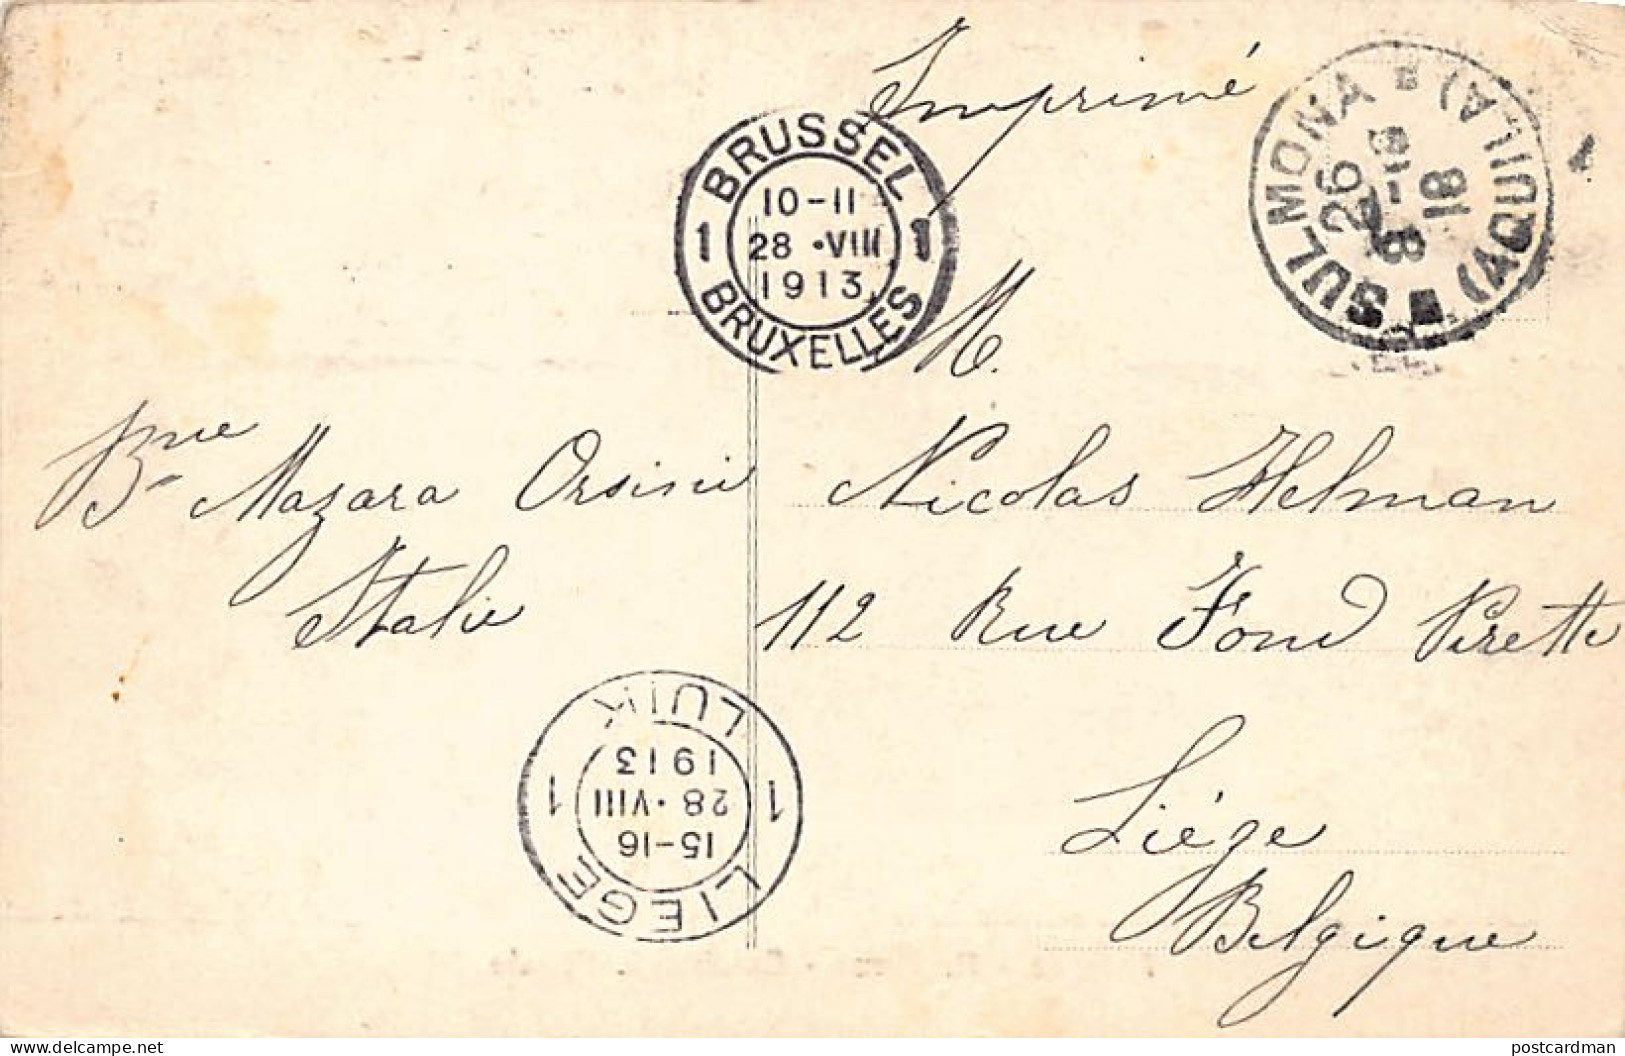 Imprimé
BRUSSEL
10-11
28 •VIII
1913
1 1
BRUXELLES
SULMONA
(AQUILA)
26
8
18
M.
Bne Mazara Orsini
Italie
Nicolas Helman
112 Rue Fond Pirette
Liége
Belgique
LIEGE
15-16
28 •VIII
1913
1 1
LUIK
delcampe.net
postcardman